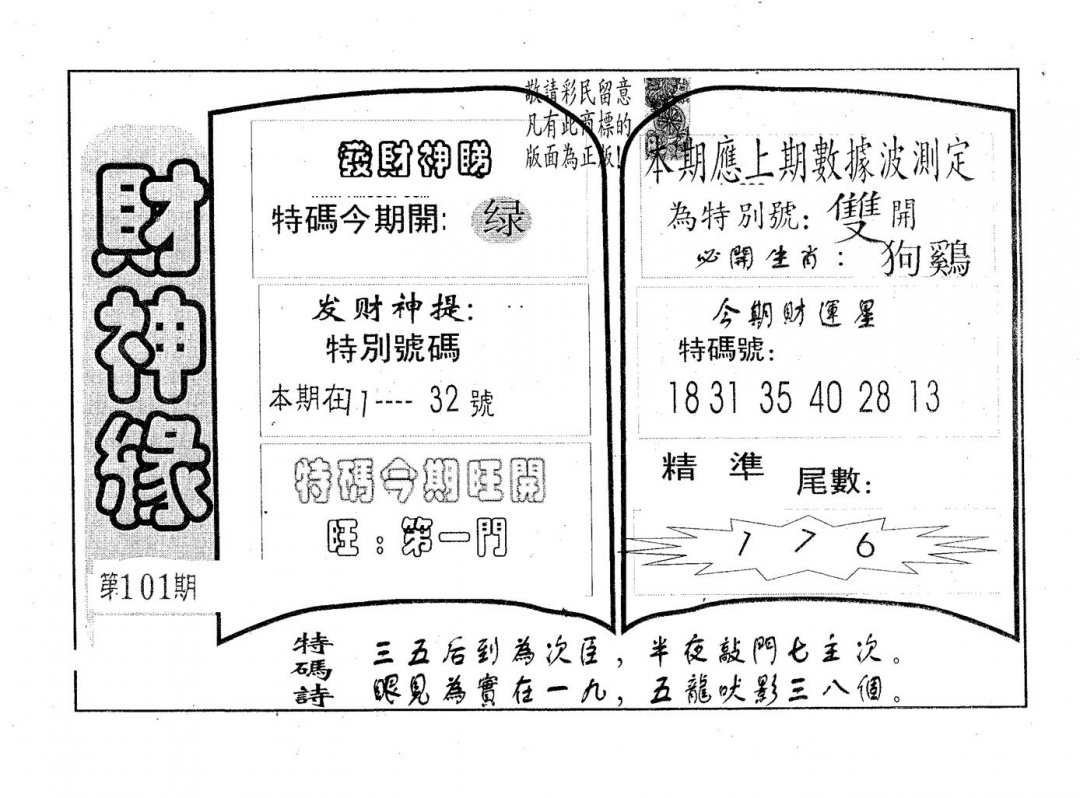 財神緣
第101期
敬請彩民留意
凡有此商標的
版面為正版!
發財神睇
特碼今期開: 绿
发财神提:
特別號碼
本期在11----32號
特碼今期旺開
旺:第一門
本期應上期數據波測定
為特別號: 雙開
必開生肖: 狗鷄
今期財運星
特碼號:
18 31 35 40 28 13
精準 尾數:
1 7 6
特碼詩
三五后到為次臣，半夜敲門七主次。
眼見為實在一九，五龍吠影三八個。